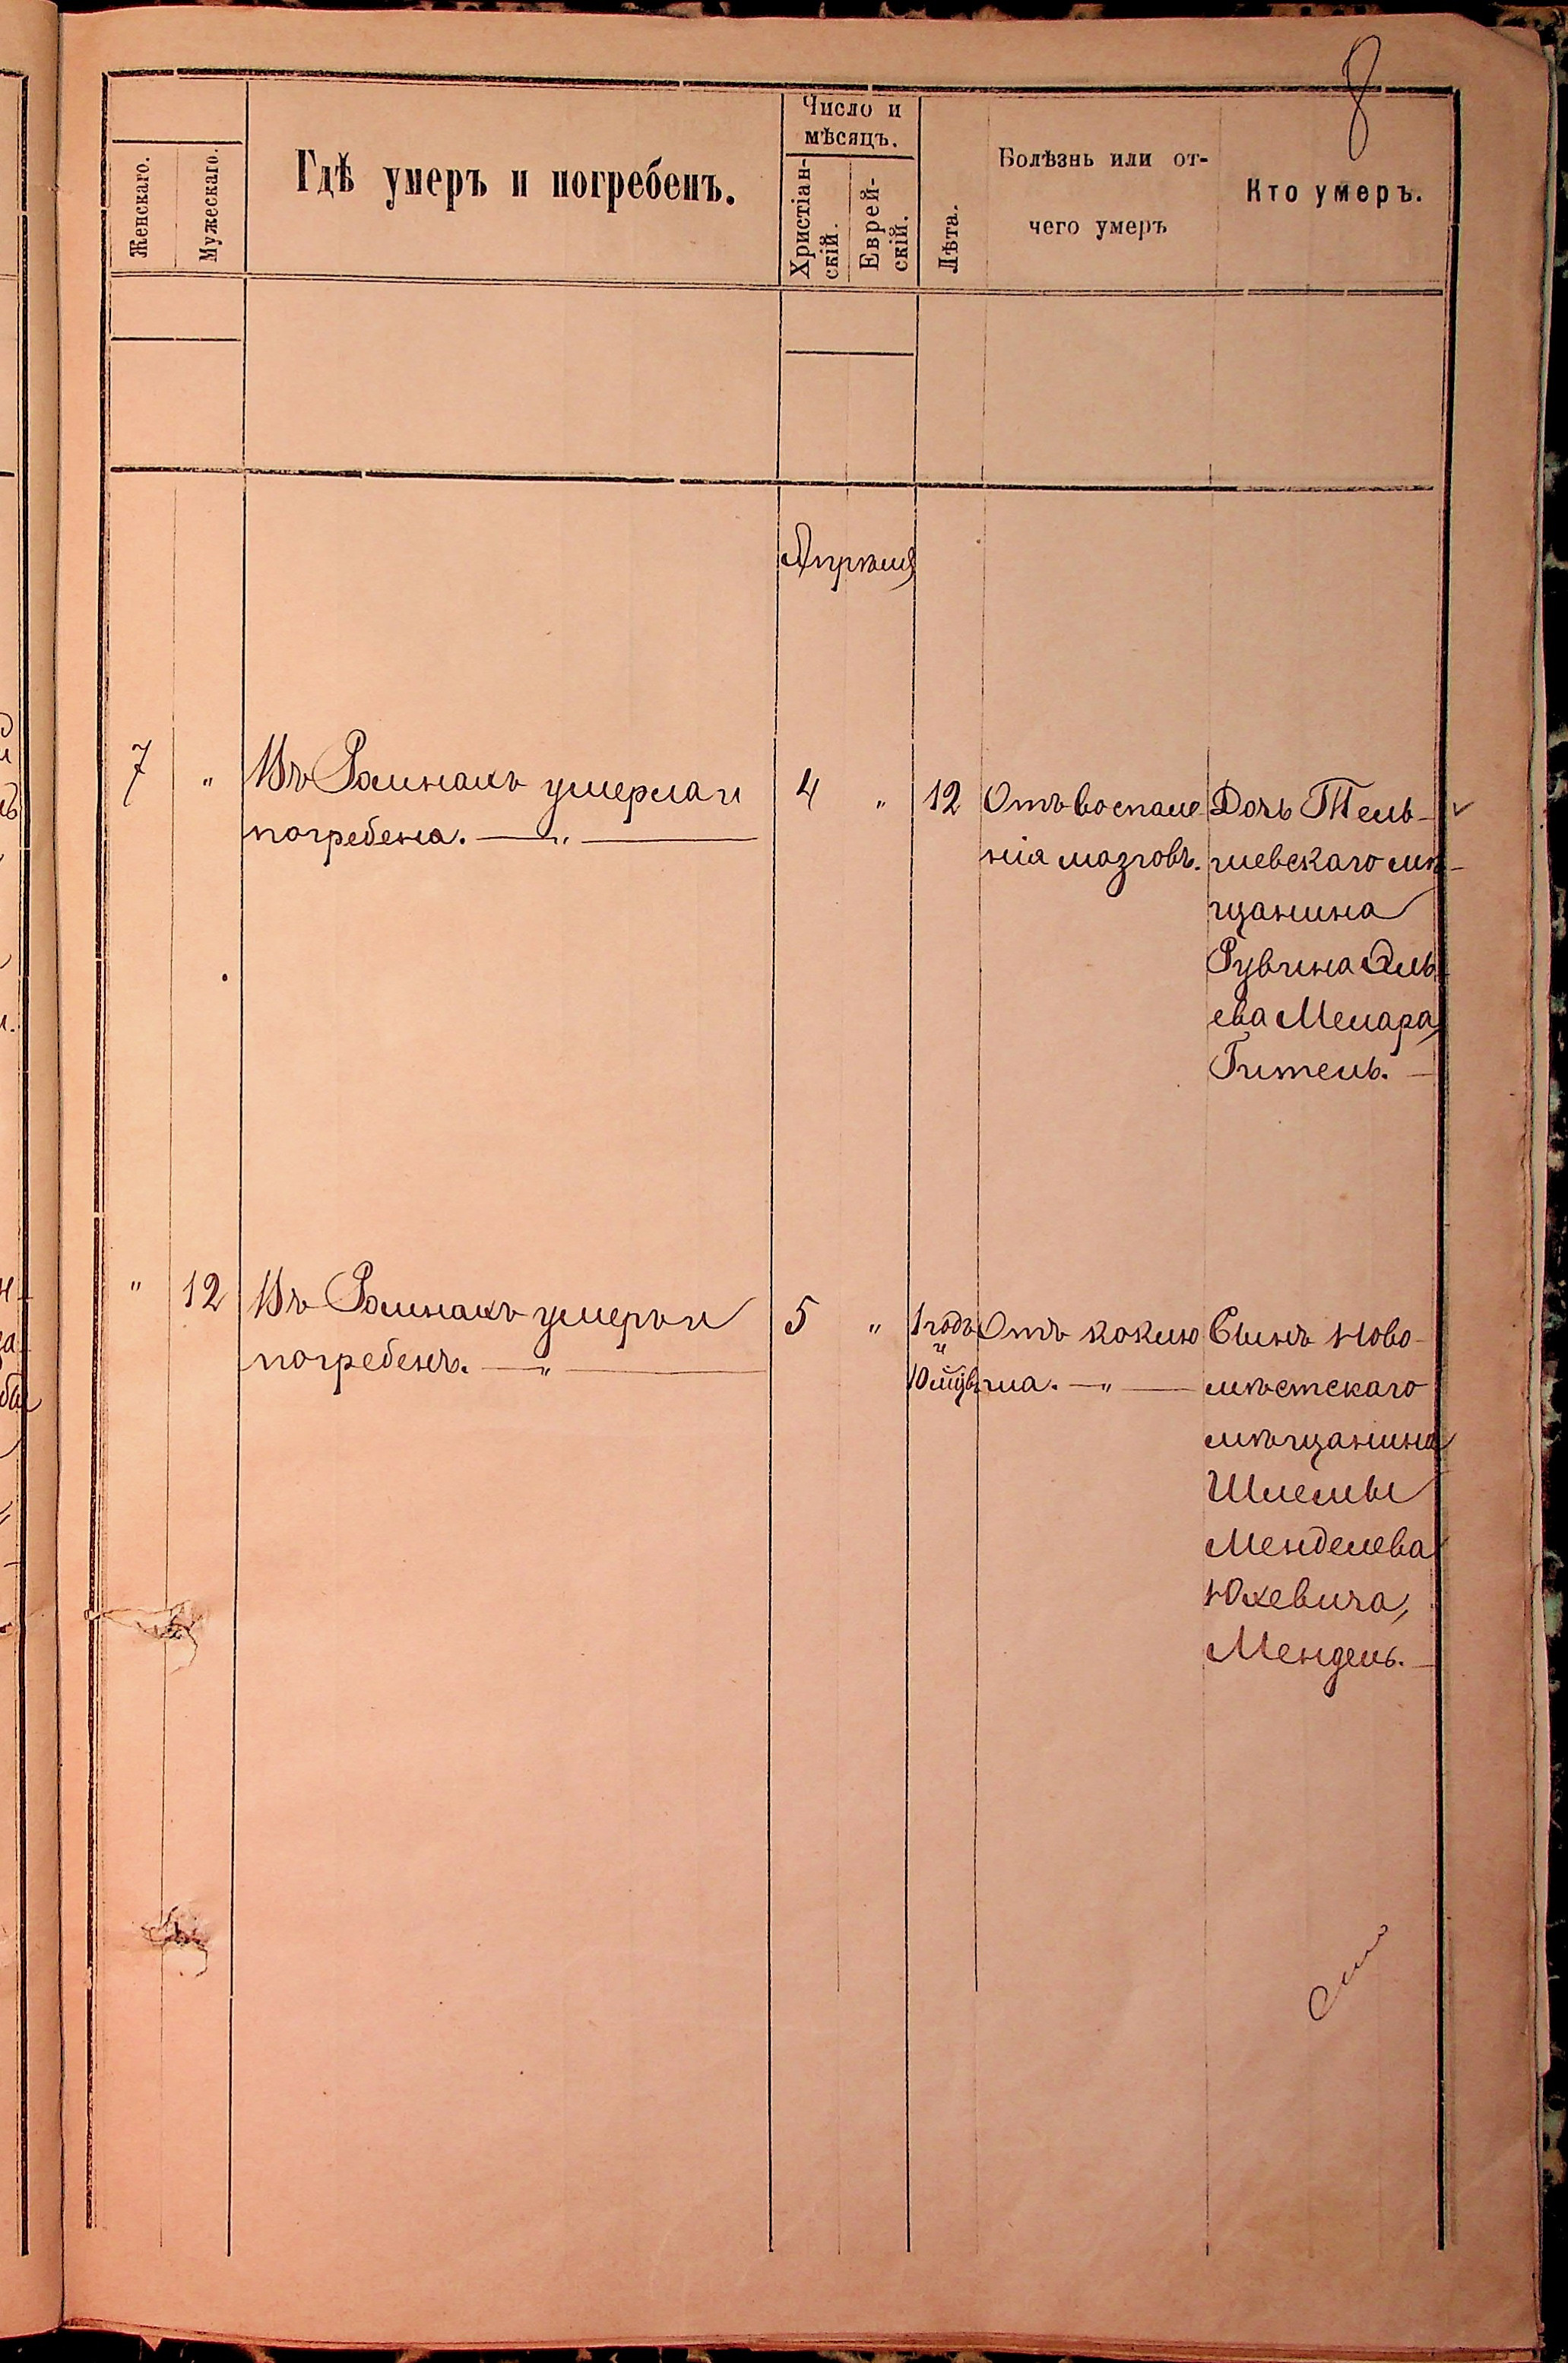 8
Женскаго.
Мужескаго.
Гдѣ умеръ и погребенъ.
Число и
мѣсяцъ.
Христіан-
скій.
Еврей-
скій.
Лѣта.
Болѣзнь или от-
чего умеръ
Кто умеръ.
Апрѣля
7 " Въ Рымнакъ умерла и
погребена. — " —
4 " 12
Отъ воспале-
нія мозговъ.
Дочь Тель-
шевскаго мѣ-
щанина
Рувина Эль-
ева Мелара,
Гитель. —
" 12 Въ Рымнакъ умеръ и
погребенъ. — " —
5 " 1 годъ
и
10 мѣ
Отъ коклю
ша. — " —
Сынъ Ново-
мѣстскаго
мѣщанина
Шлемы
Менделева
Юхевича,
Мендель. —